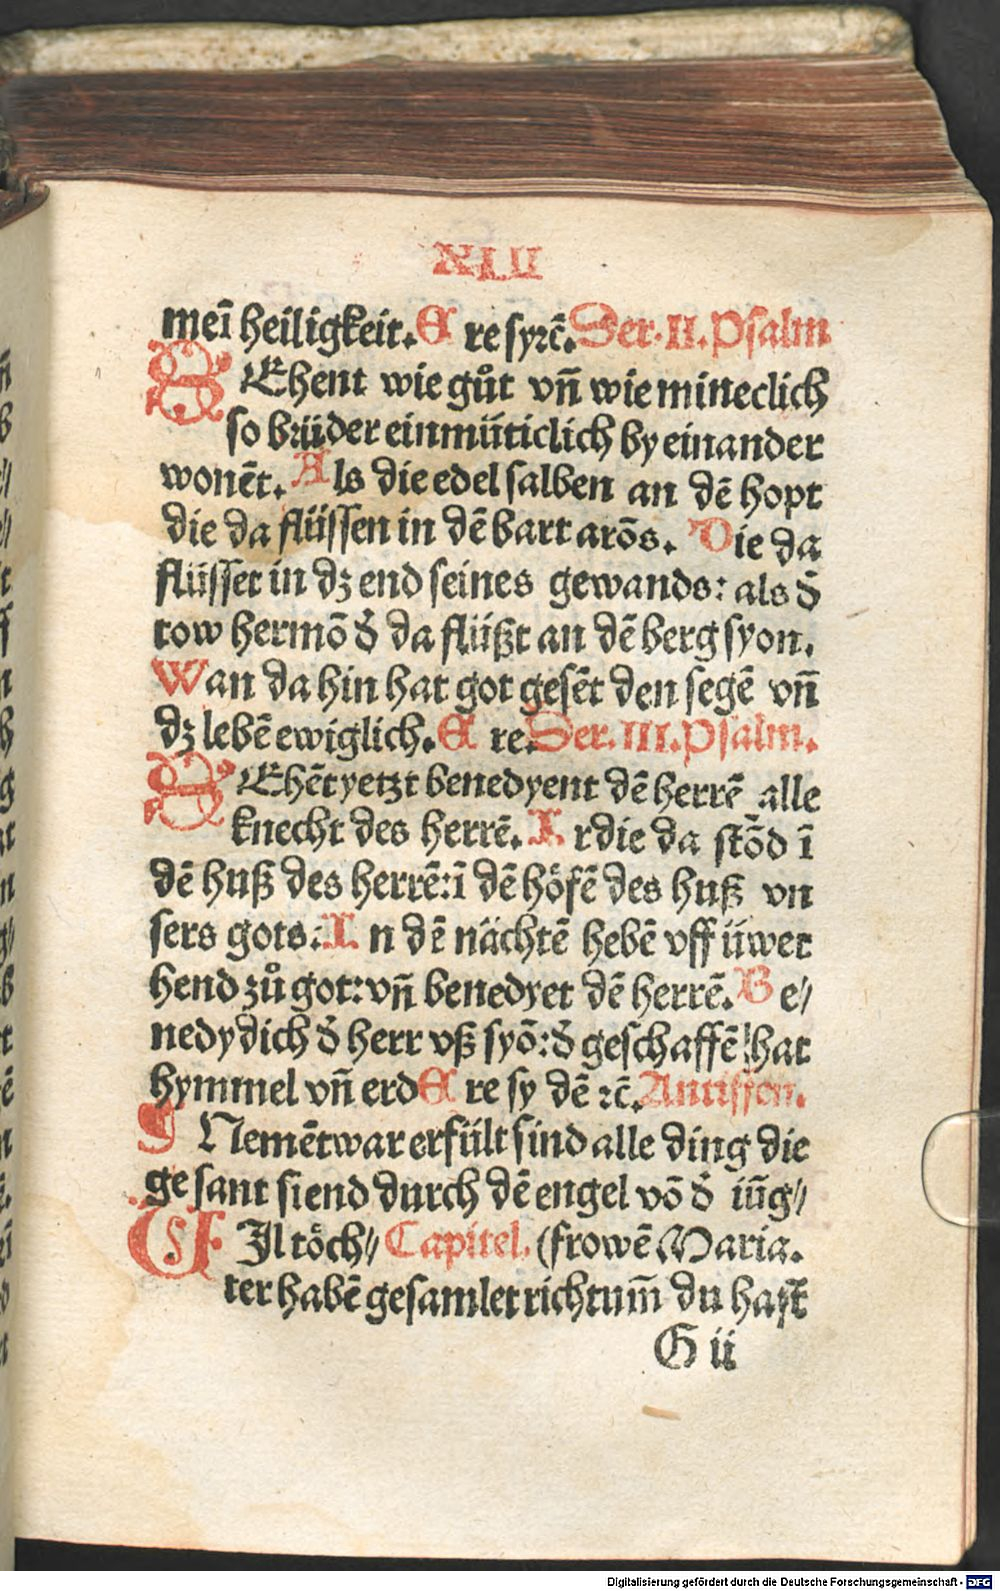 XLII
mei᷑ heiligkeit. Ere syrc̄. Der. II. Psalm
SEhent wie gůt vn̄ wie mineclich
so brüder einmüticlich by einander
wonēt. Als die edel salben an dē hopt
die da flüssen in dē bart arōs. Die da
flüsset in dʒ end seines gewands: als d̄
tow hermō d̄ da flüßt an dē berg syon.
Wan da hin hat got gesēt den segē vn̄
dʒ lebē ewiglich. Ere. Der. III. Psalm.
SEhēt yetzt benedyent dē herrē alle
knecht des herrē. Ir die da stōd ī
dē huß des herrē: ī dē höfē des huß vn
sers gots: In dē nächtē hebē vff üwer
hend zů got: vn̄ benedyet dē herrē. Be⸗
nedy dich d̄ herr vß syō: d̄ geschaffē hat
hymmel vn̄ erd Ere sy dē ꝛc̄. Antiffon.
Nemēt war erfült sind alle ding die
gesant siend durch dē engel vō d̄ iūg⸗
VIl töch⸗ Capitel. (frowē Maria.
ter habē gesamlet richtum̄ du hast
G ii
Digitalisierung gefördert durch die Deutsche Forschungsgemeinschaft - DFG